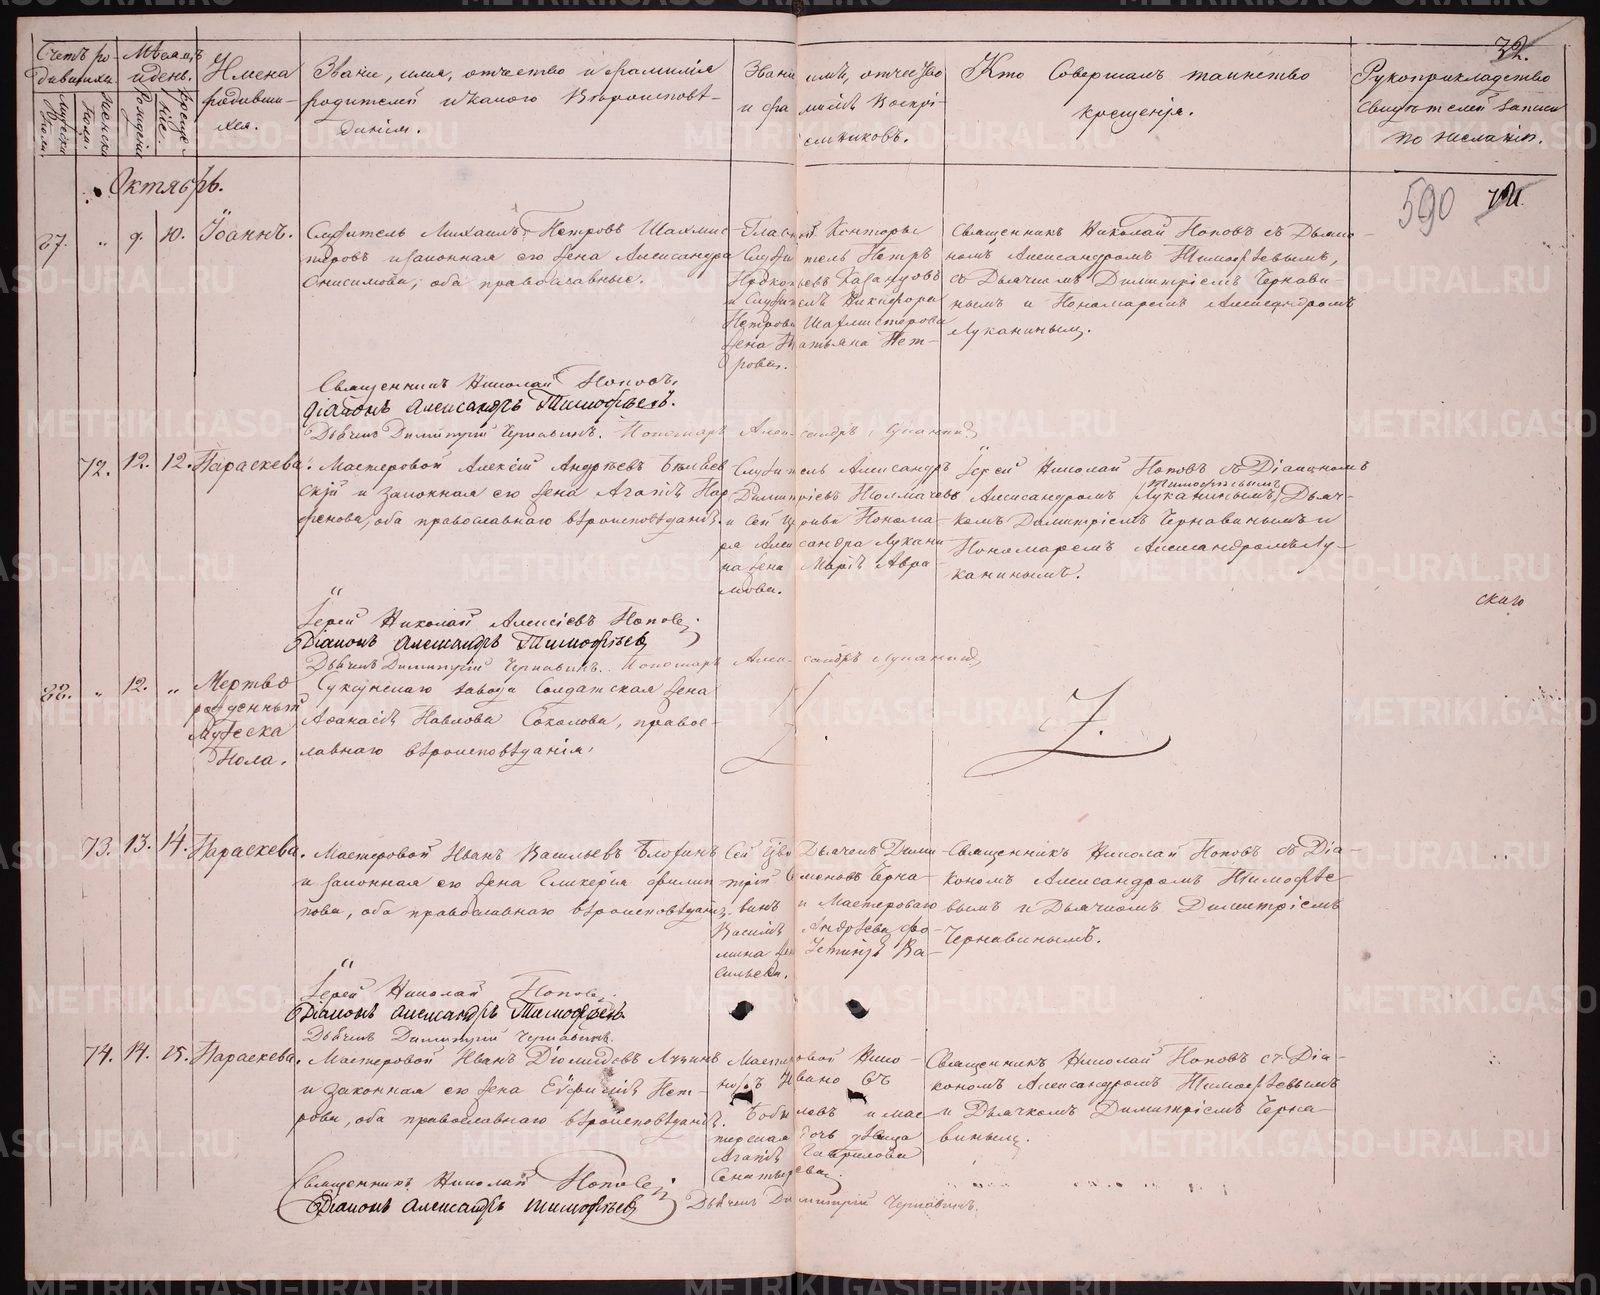 32.
Счетъ ро-
дившихся
Мѣсяцъ
и день.
Мужеска
пола.
Женска
пола.
Рожденія
Креще-
нія.
Имена
родивши-
хся.
Званіе, имя, отчество и фамилія
родителей и какого вѣроисповѣ-
данія.
Званіе имя, отчество
и фамилія воспрі-
емниковъ.
Кто совершалъ таинство
крещенія.
Рукоприкладство
свидѣтелей записи
по желанію.
Октябрь.
590
87. " 9. 10. Іоаннъ.
Служитель Михаилъ Петровъ Шахмис-
теровъ и законная его жена Александра
Онисимова, оба православные.
Конторы
Служитель Петръ
Прокопьевъ
и Служителя Никифора
Петрова Шахмистерова
жена Татьяна Пет-
рова.
Священникъ Николай Поповъ съ Діако-
номъ Александромъ Тимофѣевымъ,
съ Дьячкомъ Димитріемъ Чернави-
нымъ и Пономаремъ Александромъ
Луканинымъ.
Священникъ Николай Поповъ.
Діаконъ Александръ Тимофѣевъ.
Дьячекъ Димитрій Чернавинъ. Пономарь Александръ Луканинъ
72. 12. 12. Параскева.
Мастеровой Алексѣй Андреевъ
и законная его жена Агапія Пар-
фенова, оба православнаго вѣроисповѣданія.
Служитель Александръ
Димитріевъ Толмачевъ
и сей церкви Понома-
ря Александра Лукани-
на жена Марія Авра-
мова.
Іерей Николай Поповъ съ Діакономъ
Александромъ Тимофѣевымъ Луканинымъ, Дьяч-
комъ Димитріемъ Чернавинымъ и
Пономаремъ Александромъ Лу-
канинымъ.
скаго
Іерей Николай Алексіевъ Поповъ
Діаконъ Александръ Тимофѣевъ
Дьячекъ Димитрій Чернавинъ. Пономарь Александръ Луканинъ
88. " 12. "
Мертво
рожденный
Мужеска
Пола.
Суксунскаго завода Солдатская жена
Афанасія Павлова Соколова, право-
славнаго вѣроисповѣданія.
73. 13. 14. Параскева.
Мастеровой Иванъ Васильевъ Блохинъ
и законная его жена Гликерія Филип-
пова, оба православнаго вѣроисповѣданія.
Сей Церкви Дьячекъ Дими-
трій Семеновъ Черна-
винъ и Мастероваго
Василія Андреева Фо-
мина жена Устинія Ва-
сильева.
Священникъ Николай Поповъ съ Діа-
кономъ Александромъ Тимофѣе-
вымъ и Дьячкомъ Димитріемъ
Чернавинымъ.
Іерей Николай Поповъ
Діаконъ Александръ Тимофѣевъ
Дьячекъ Димитрій Чернавинъ.
74. 14. 15. Параскева.
Мастеровой Иванъ Діомидовъ Лузинъ
и законная его жена Евфимія Пет-
рова, оба православнаго вѣроисповѣданія.
Мастеровой Нико-
норъ Ивановъ
Бобылевъ и мас-
терская дочь дѣвица
Агапія Гаврилова
Священникъ Николай Поповъ съ Діа-
кономъ Александромъ Тимофѣевымъ
и Дьячкомъ Димитріемъ Черна-
винымъ.
Священникъ Николай Поповъ
Діаконъ Александръ Тимофѣевъ
Дьячекъ Димитрій Чернавинъ.
METRIKI.GASO-URAL.RU